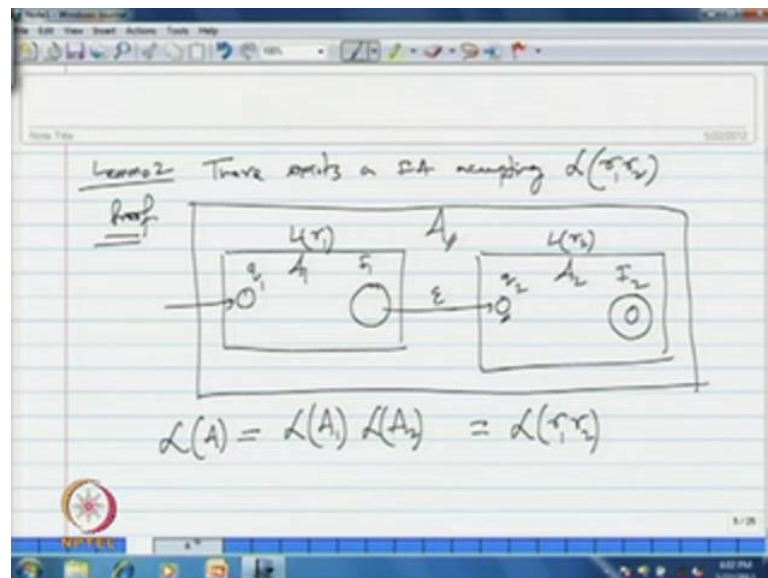 Note1 - Windows Journal
File Edit View Insert Actions Tools Help
Note Title
5/22/2012
Lemma 2 There exists a FA accepting L(r₁r₂)
Proof
L(r₁) A L(r₂)
q₁ A₁ F₁ ε q₂ A₂ F₂
L(A) = L(A₁) L(A₂) = L(r₁r₂)
NPTEL
5/25
6:02 PM